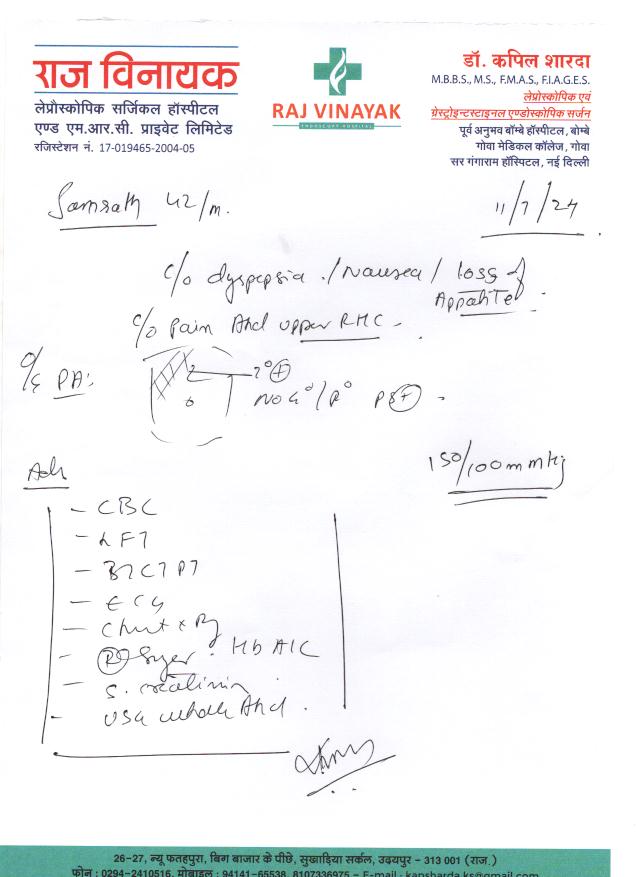 राज विनायक
लेप्रौस्कोपिक सर्जिकल हॉस्पीटल
एण्ड एम.आर.सी. प्राइवेट लिमिटेड
रजिस्टेशन नं. 17-019465-2004-05
RAJ VINAYAK
ENDOSCOPY HOSPITAL
डॉ. कपिल शारदा
M.B.B.S., M.S., F.M.A.S., F.I.A.G.E.S.
लेप्रोस्कोपिक एवं
ग्रेस्ट्रोइन्टस्टाइनल एण्डोस्कोपिक सर्जन
पूर्व अनुभव बॉम्बे हॉस्पीटल, बोम्बे
गोवा मेडिकल कॉलेज, गोवा
सर गंगाराम हॉस्पिटल, नई दिल्ली
Samrath 42/m.
11/7/24
c/o dyspepsia /Nausea/ loss of
Appatite
c/o Pain Abd upper RHC
O/E PA:
NO G°/R° PS+
150/100 mmHg
Adv
- CBC
- LFT
- BT CT PT
- ECG
- Chest x Ry
- (R) Suger. HbA1C
- S. creatinin
- USG whole Abd.
26-27, न्यू फतहपुरा, बिग बाजार के पीछे, सुखाड़िया सर्कल, उदयपुर - 313 001 (राज.)
फोन : 0294-2410516, मोबाइल : 94141-65538, 8107336975 - E-mail : kapsharda.ks@gmail.com